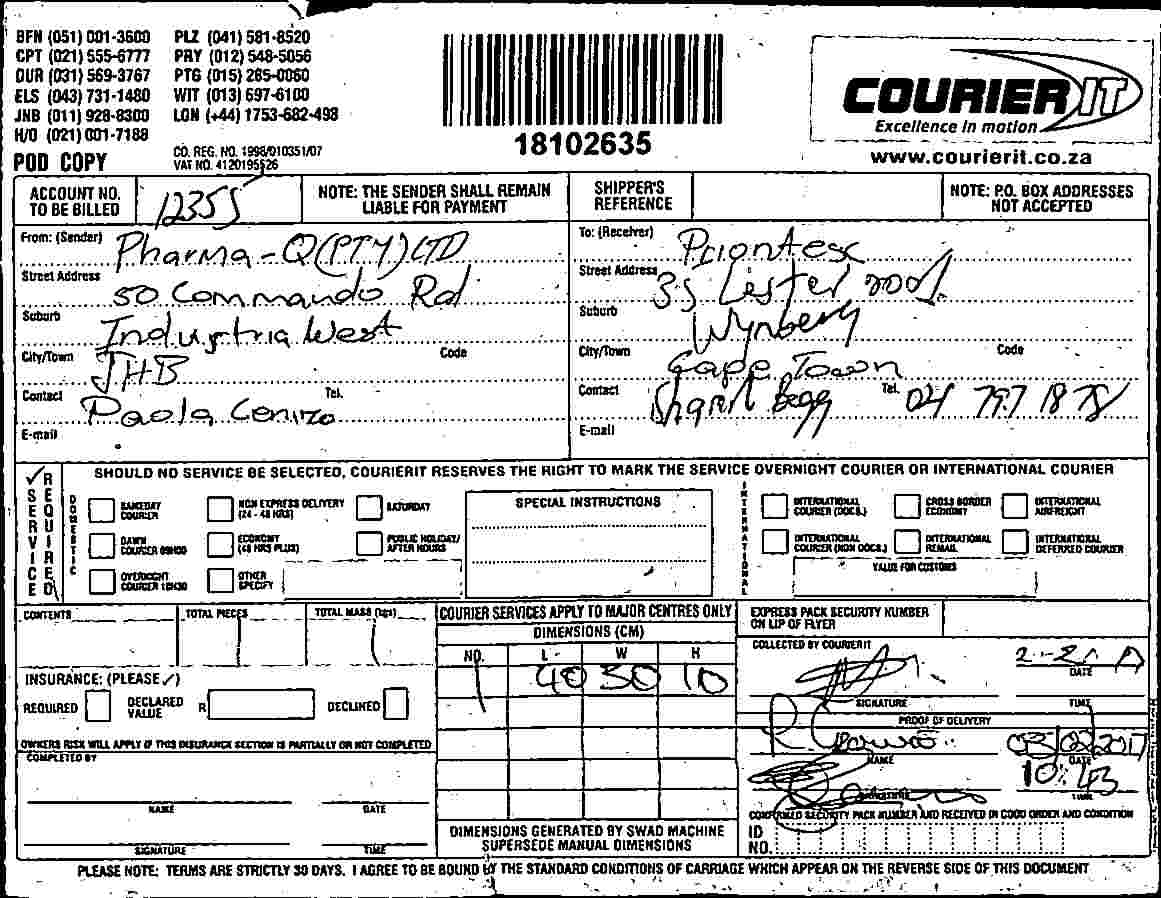 BFN (051) 001-3600 PLZ (041) 581-8520
CPT (021) 555-6777 PRY (012) 548-5056
DUR (031) 569-3767 PTG (015) 285-0060
ELS (043) 731-1480 WIT (013) 697-6100
JNB (011) 928-8300 LON (+44) 1753-682-498
H/O (021) 001-7188
POD COPY
CO. REG. NO. 1998/010351/07
VAT NO. 4120195526
18102635
COURIER IT
Excellence in motion
www.courierit.co.za
ACCOUNT NO. TO BE BILLED 12355
NOTE: THE SENDER SHALL REMAIN LIABLE FOR PAYMENT
SHIPPER'S REFERENCE
NOTE: P.O. BOX ADDRESSES NOT ACCEPTED
From: (Sender) Pharma-Q (PTY) LTD
Street Address 50 Commando Rd
Suburb Industria West
City/Town JHB Code
Contact Paola Tel.
E-mail
To: (Receiver)
Street Address 35 Lester road
Suburb Wynberg
City/Town Cape Town Code
Contact Begg Tel. 797 1878
E-mail
SERVICE REQUIRED
SHOULD NO SERVICE BE SELECTED, COURIERIT RESERVES THE RIGHT TO MARK THE SERVICE OVERNIGHT COURIER OR INTERNATIONAL COURIER
DOMESTIC
SAMEDAY COURIER
NON EXPRESS DELIVERY (24 - 48 HRS)
SATURDAY
DAWN COURIER 09H00
ECONOMY (48 HRS PLUS)
PUBLIC HOLIDAY/ AFTER HOURS
OVERNIGHT COURIER 10H30
OTHER SPECIFY
SPECIAL INSTRUCTIONS
INTERNATIONAL
INTERNATIONAL COURIER (DOCS.)
CROSS BORDER ECONOMY
INTERNATIONAL AIRFREIGHT
INTERNATIONAL COURIER (NON DOCS.)
INTERNATIONAL REMAIL
INTERNATIONAL DEFERRED COURIER
VALUE FOR CUSTOMS
CONTENTS
TOTAL PIECES
TOTAL MASS (kgs)
COURIER SERVICES APPLY TO MAJOR CENTRES ONLY
DIMENSIONS (CM)
NO. L W H
1 40 30 10
DIMENSIONS GENERATED BY SWAD MACHINE SUPERSEDE MANUAL DIMENSIONS
INSURANCE: (PLEASE ✓)
REQUIRED DECLARED VALUE R DECLINED
OWNERS RISK WILL APPLY IF THIS INSURANCE SECTION IS PARTIALLY OR NOT COMPLETED
COMPLETED BY
NAME DATE
SIGNATURE TIME
EXPRESS PACK SECURITY NUMBER ON LIP OF FLYER
COLLECTED BY COURIERIT
SIGNATURE DATE
TIME
PROOF OF DELIVERY
03/02/2017
NAME DATE
10:43
TIME
CONFIRMED SECURITY PACK NUMBER AND RECEIVED IN GOOD ORDER AND CONDITION
ID NO.
PLEASE NOTE: TERMS ARE STRICTLY 30 DAYS. I AGREE TO BE BOUND BY THE STANDARD CONDITIONS OF CARRIAGE WHICH APPEAR ON THE REVERSE SIDE OF THIS DOCUMENT